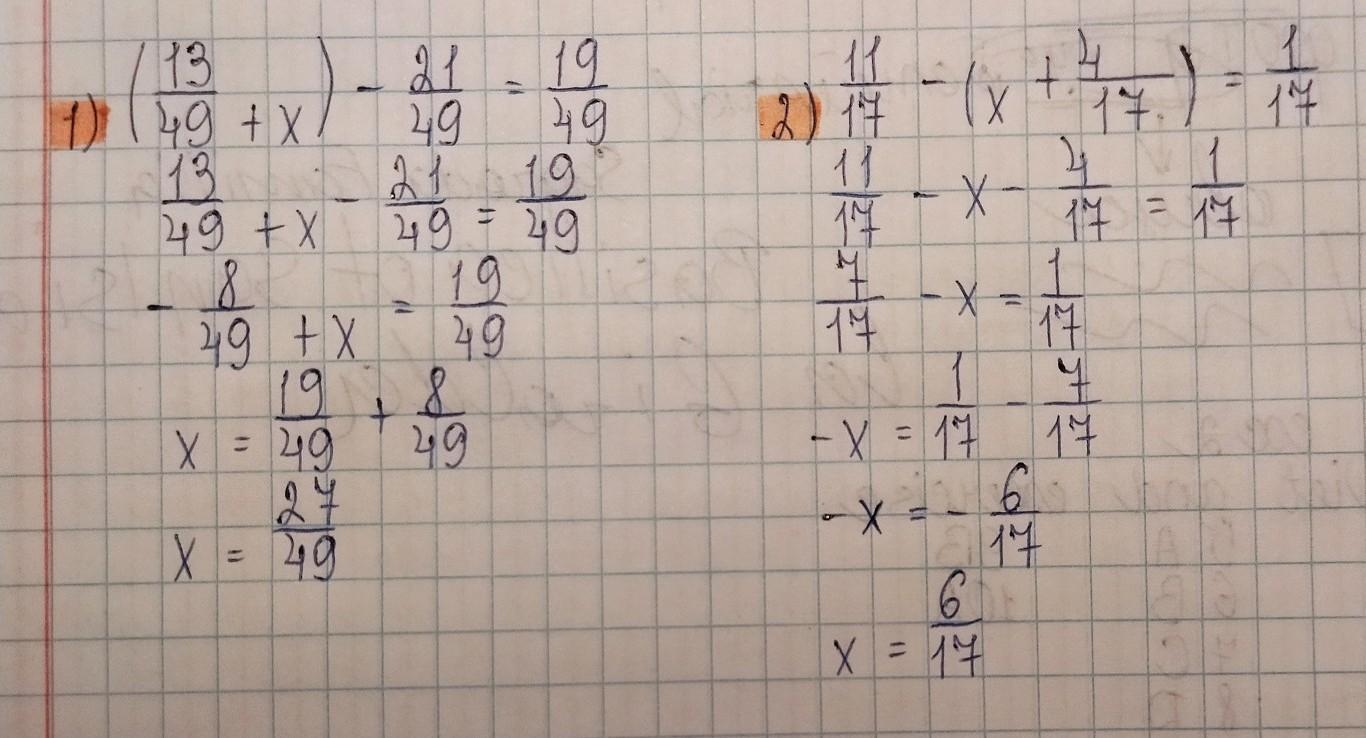 1) (13/49 + x) - 21/49 = 19/49
13/49 + x - 21/49 = 19/49
- 8/49 + x = 19/49
x = 19/49 + 8/49
x = 27/49
2) 11/17 - (x + 4/17) = 1/17
11/17 - x - 4/17 = 1/17
7/17 - x = 1/17
- x = 1/17 - 7/17
- x = - 6/17
x = 6/17